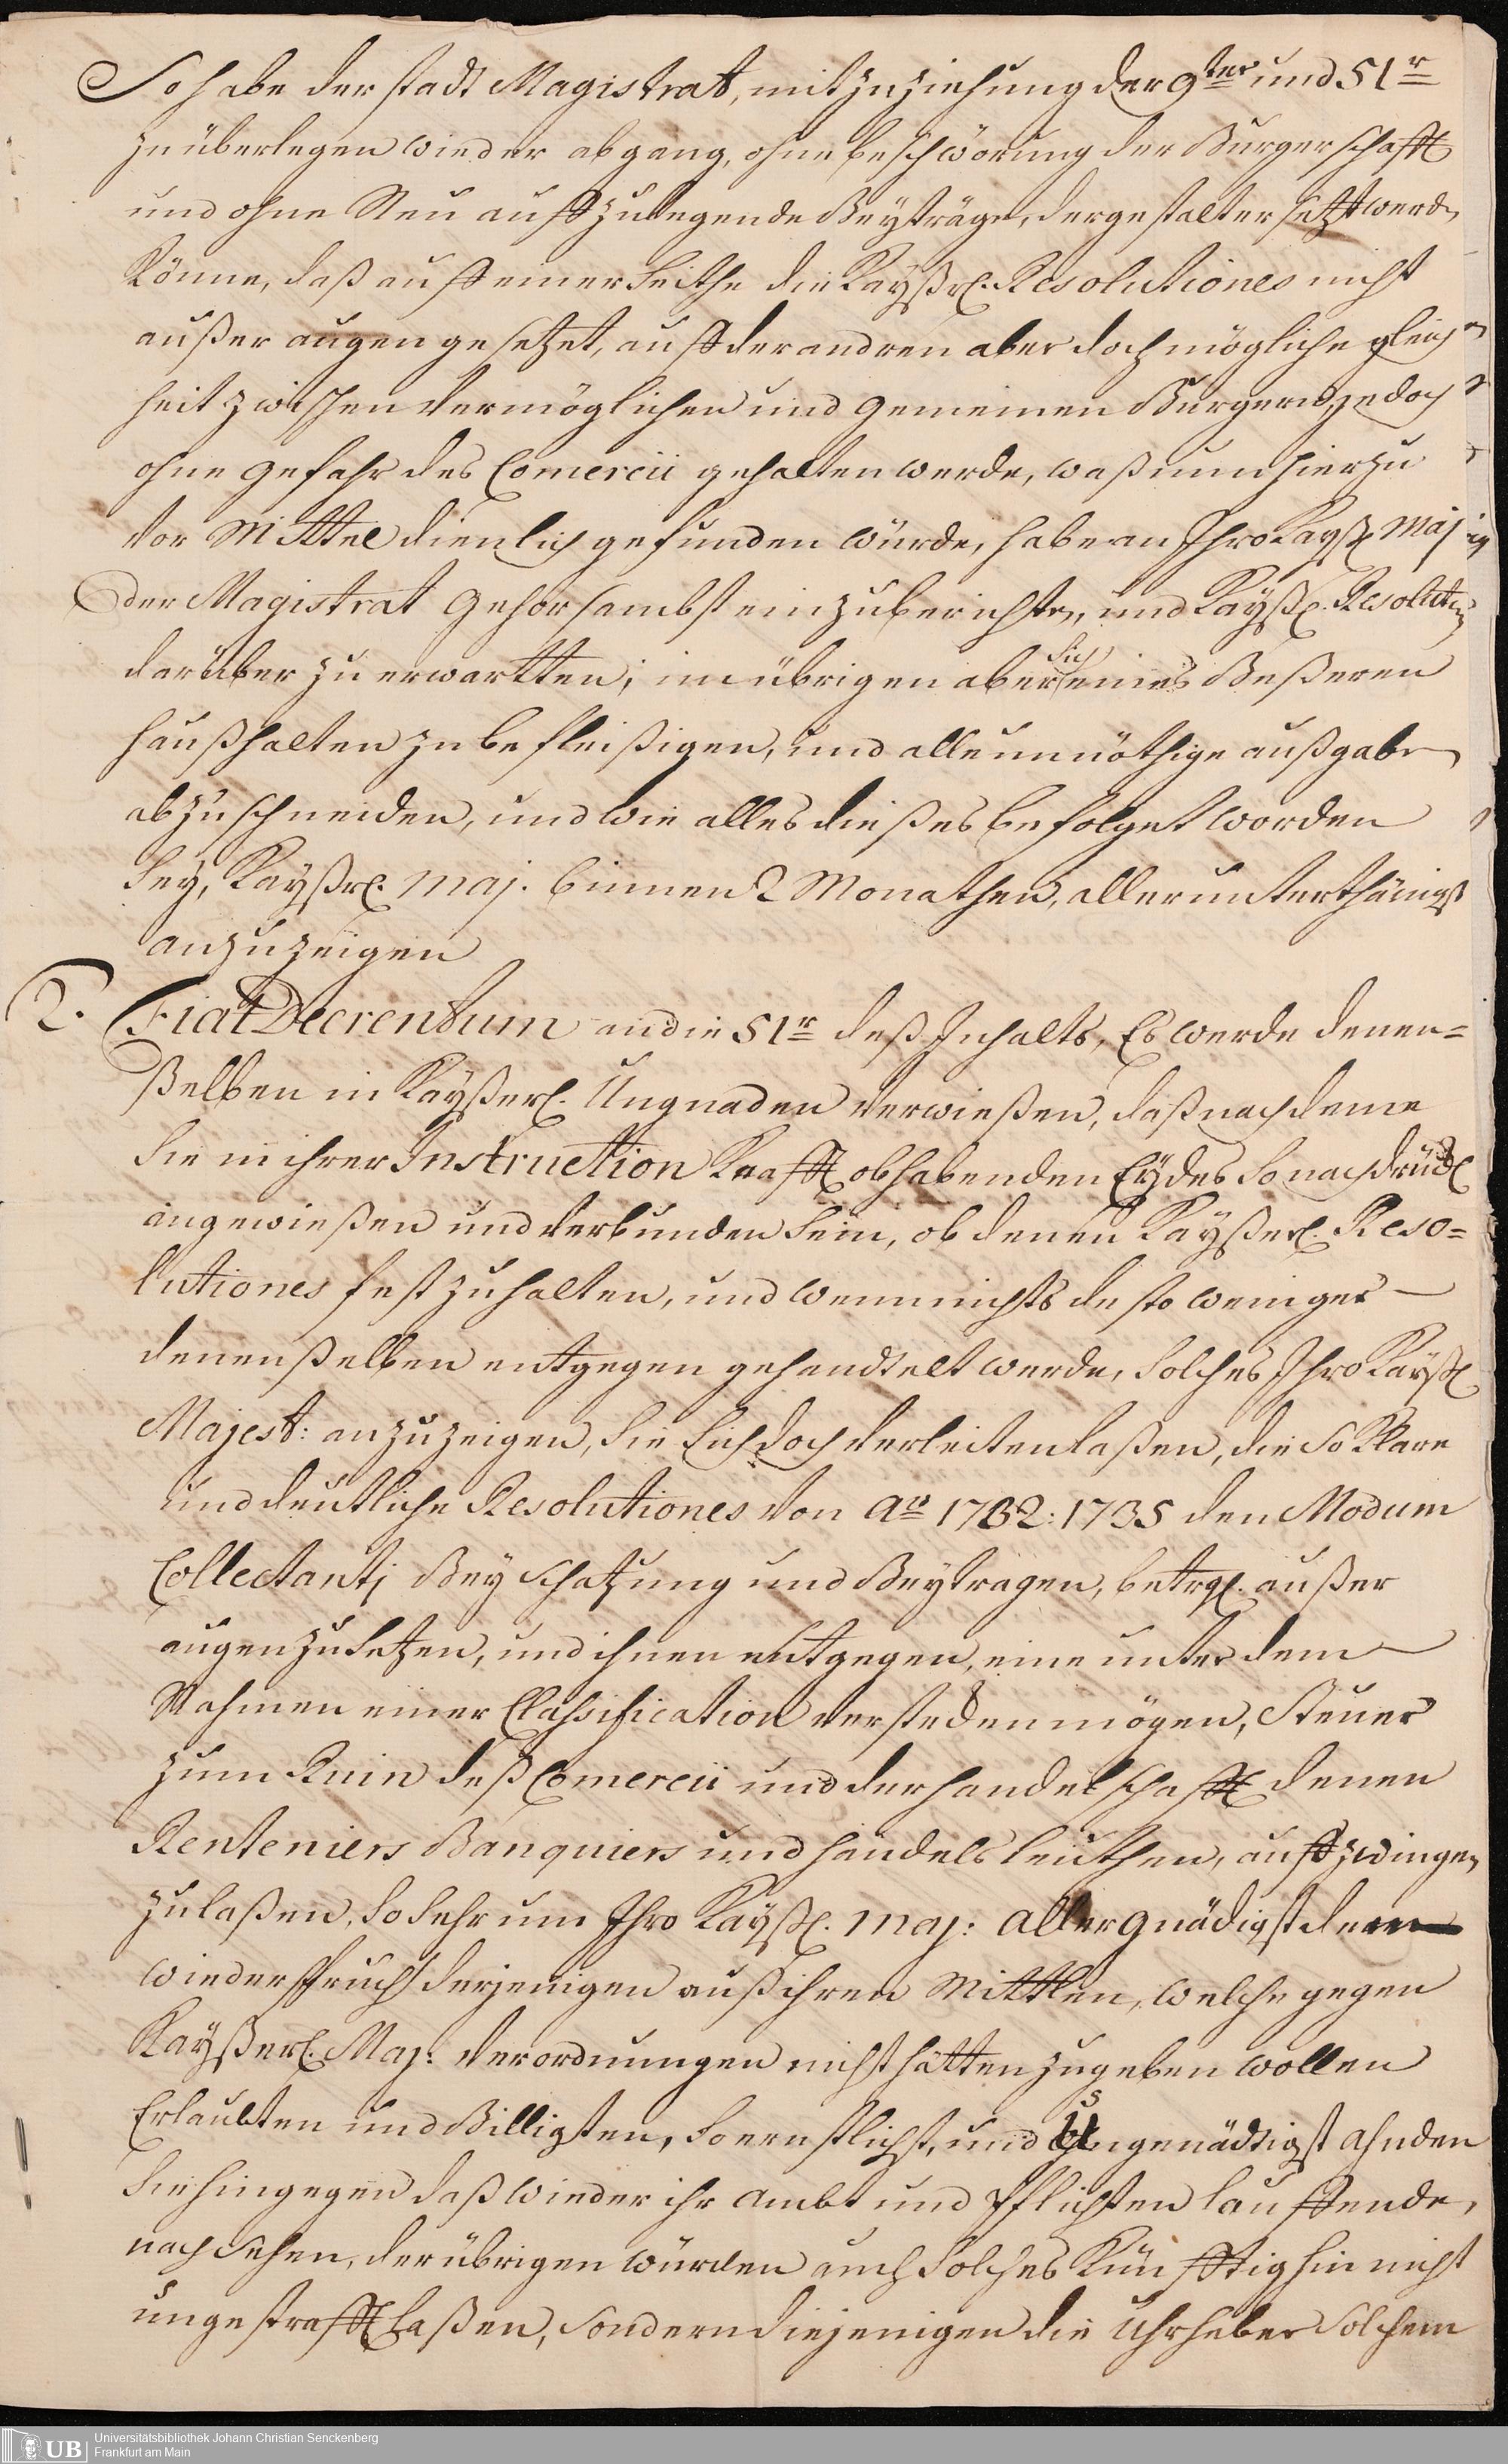 So habe der stadt Magistrat, mit zuziehung der 9ter und 51r
zu überlegen wie der abgang, ohne beschwörung der Burgerschafft
und ohne Neu auffzulegende Beyträge, dergestalt ersetzt werdn
könne, daß auff einer Seithe die Kayßrl. Resolutiones nicht
außer augen gesetzet, auff der andren aber doch mögliche gleich
heit zwischen Vermöglichen und gemeinen Burgern, jedoch
ohne gefahr des Comercii gehalten werde, waß nun hierzu
vor Mittel dienlich gefunden würde, habe an Ihro Kayßl Maj
der Magistrat gehorsambst einzuberichtn, und Kayßl. Resolut
darüber zu erwartten; im übrigen aber sich eines Beßeren
haußhalten zu befleißigen, und alle unnöthige außgabn
abzuschneiden, und wie alles dießes befolget worden
sey, Kayßrl. Maj. binnen 2 Monathen, allerunterthänigst
anzuzeigen
2. Fiat Decrentum an die 51r deß Inhalts, Es werde denen=
ßelben in Kayßerl. Ungnaden verwießen, daß nachdeme
sie in ihrer Instruction Krafft obhabenden Eydes so nachdrückl
angewießen und verbunden sein, ob denen Kayßerl. Reso=
lutiones fest zu halten, und wenn nichts desto weniger
denenßelben entgegen gehandtelt werde, solches Ihro Kayßl
Majest: anzuzeigen, sie sich doch verleiten laßen, die so klare
und deutliche Resolutiones von ao 1732: 1735 den Modum
Collectanti Bey schatzung und Beytragen, betrgl. außer
augen zu setzen, und ihnen entgegen, eine unter dem
Nahmen einer Classification verstecken mögen, Steuer
zum Ruin deß Comercii und der handelschafft denen
Renteniers Banquiers und handelsleuthen, auffzwingen
zu laßen, so sehr nun Ihro Kayßl. Maj: allergnädigst dem
wiederspruch derjenigen auß ihren Mittlen, welche gegen
Kayßerl. Maj: Verordnungen nicht hätten zugeben wollen
Erlaubten und Billigten, so ernstlichst, und Ungenädtigst ahnden
sie hingegen daß wieder ihr ambt und Pflichten lauffende,
nachsehen, der übrigen würden auch solches künfftighin nicht
ungestrafft laßen, sondern diejenigen die Uhrheber solchem
Universitätsbibliothek Johann Christian Senckenberg
Frankfurt am Main
UB